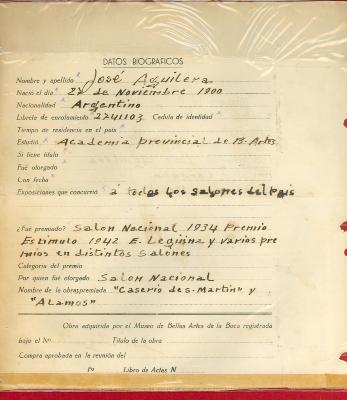 DATOS BIOGRAFICOS
Nombre y apellido José Aguilera
Nació el día 27 de Noviembre 1900
Nacionalidad Argentino
Libreta de enrolamiento 2241103 Cedula de identidad
Tiempo de residencia en el país
Estudió Academia Provincial de B. Artes
Si tiene título
Fué otorgado
Con fecha
Exposiciones que concurrió á todos los salones del Pais
¿Fué premiado? Salon Nacional 1934 Premio
Estimulo 1942 E. Leguina y varios pre
mios en distintos Salones
Categoría del premio
Por quien fué otorgado Salon Nacional
Nombre de la obra premiada "Caserio de S. Martin" y
"Alamos"
Obra adquirida por el Museo de Bellas Artes de la Boca registrada
bajo el Nº Título de la obra
Compra aprobada en la reunión del
Fº Libro de Actas N